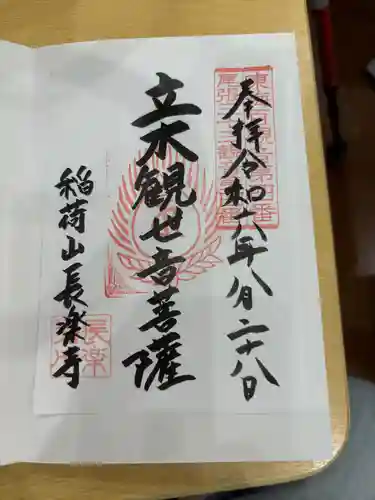 奉拝令和六年八月二十八日
立木観世音菩薩
稲荷山長楽寺